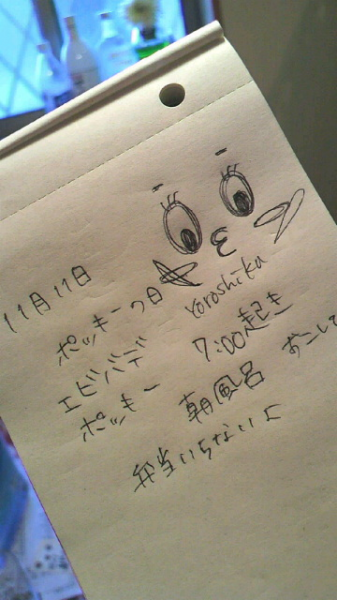 11月11日
ポッキーの日
エビバデ
ポッキー
yoroshiku
7:00起き
朝風呂
おこして
弁当いらないよ